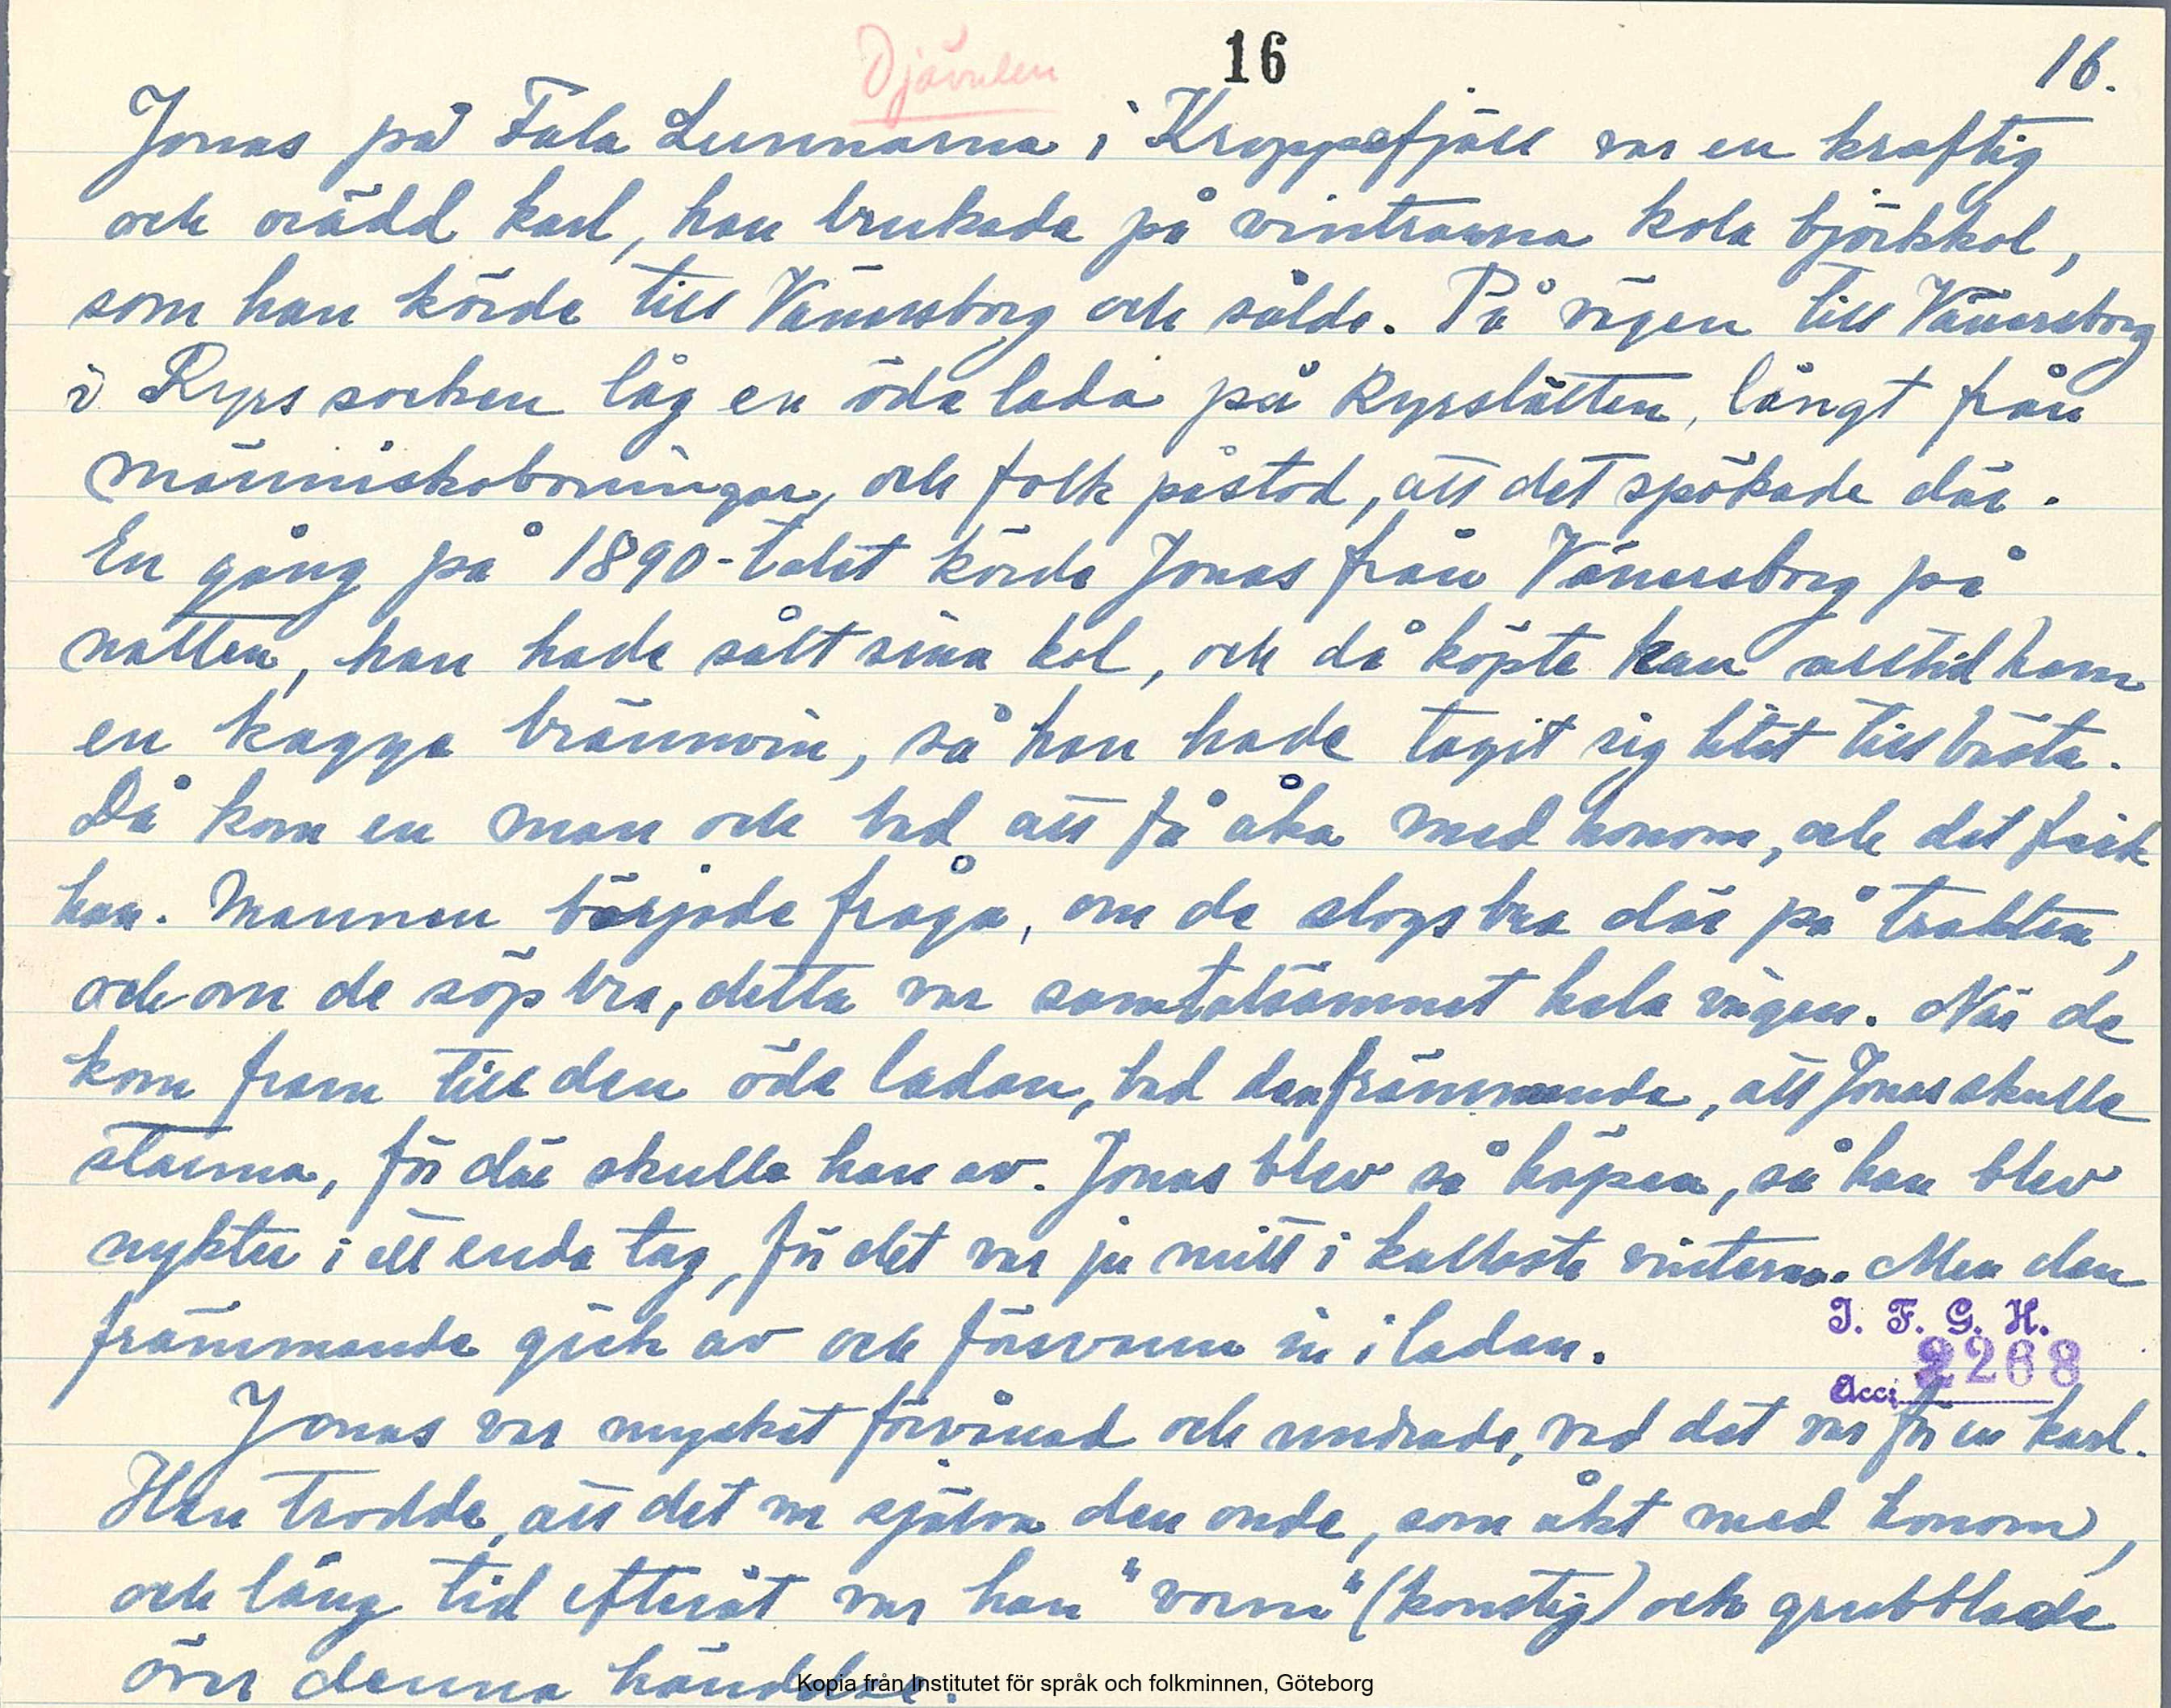 Djävulen
16
16.
Jonas på Fala Lunnarna i Kroppefjäll var en kraftig
och orädd karl, han brukade på vintrarna kola björkkol,
som han körde till Vänersborg och sålde. På vägen till Vänersborg
i Ryrs socken låg en öde lada på Ryrslätten, långt från
människoboningar, och folk påstod, att det spökade där.
En gång på 1890-talet körde Jonas från Vänersborg på
natten, han hade sålt sina kol, och då köpte han alltid hem
en kagge brännvin, så han hade tagit sig litet till bästa.
Då kom en man och bad att få åka med honom, och det fick
han. Mannen började fråga, om de slogs bra där på trakten,
och om de söp bra, detta var samtalsämnet hela vägen. När de
kom fram till den öde ladan, bad den främmande, att Jonas skulle
stanna, för där skulle han av. Jonas blev så häpen, så han blev
nykter i ett enda tag, för det var ju mitt i kallaste vintern. Men den
främmande gick av och försvann in i ladan.
I. F. G. H.
Acc. 2268
Jonas var mycket förvånad och undrade, vad det var för en karl.
Han trodde, att det var själva den onde, som åkt med honom,
och lång tid efteråt var han "vorn" (konstig) och grubblade
över denna händelse.
Kopia från Institutet för språk och folkminnen, Göteborg